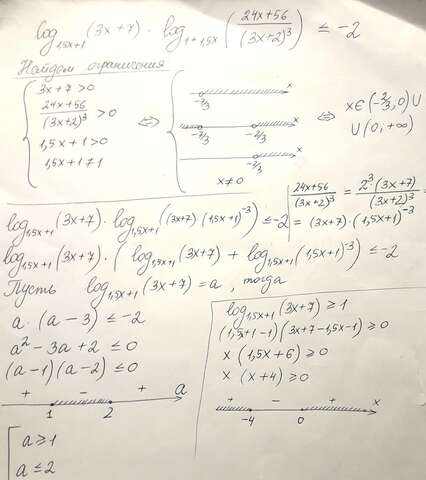 log₁,₅ₓ₊₁ (3x+7) · log₁₊₁,₅ₓ ((24x+56)/(3x+2)³) ≤ -2
Найдем ограничения
{ 3x+7 > 0
(24x+56)/(3x+2)³ > 0
1,5x+1 > 0
1,5x+1 ≠ 1
⇔
{ -7/3 x
-7/3 -2/3 x
-2/3 x
x ≠ 0
⇔ x∈(-2/3, 0) ∪
∪ (0, +∞)
(24x+56)/(3x+2)³ = 2³·(3x+7)/(3x+2)³ =
= (3x+7)·(1,5x+1)⁻³
log₁,₅ₓ₊₁ (3x+7) · log₁,₅ₓ₊₁ ((3x+7)(1,5x+1)⁻³) ≤ -2
log₁,₅ₓ₊₁ (3x+7) · ( log₁,₅ₓ₊₁ (3x+7) + log₁,₅ₓ₊₁ (1,5x+1)⁻³) ≤ -2
Пусть log₁,₅ₓ₊₁ (3x+7) = a , тогда
a · (a-3) ≤ -2
a² - 3a + 2 ≤ 0
(a-1)(a-2) ≤ 0
+ - + a
1 2
[ a ≥ 1
a ≤ 2
log₁,₅ₓ₊₁ (3x+7) ≥ 1
(1,5x+1-1)(3x+7-1,5x-1) ≥ 0
x (1,5x+6) ≥ 0
x (x+4) ≥ 0
+ - + x
-4 0